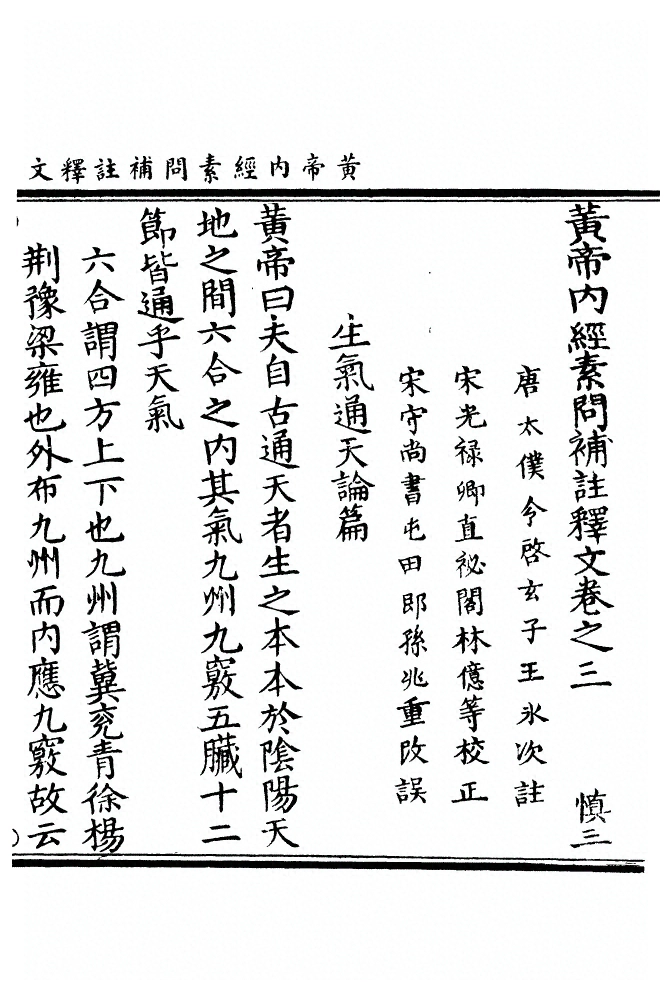 黃帝內經素問補註釋文
黃帝內經素問補註釋文卷之三 慎三
唐太僕令啓玄子王氷次註
宋光祿卿直祕閣林億等校正
宋守尚書屯田郎孫兆重改誤
生氣通天論篇
黃帝曰夫自古通天者生之本本於陰陽天
地之間六合之內其氣九州九竅五臟十二
節皆通乎天氣
六合謂四方上下也九州謂冀兖青徐楊
荆豫梁雍也外布九州而內應九竅故云